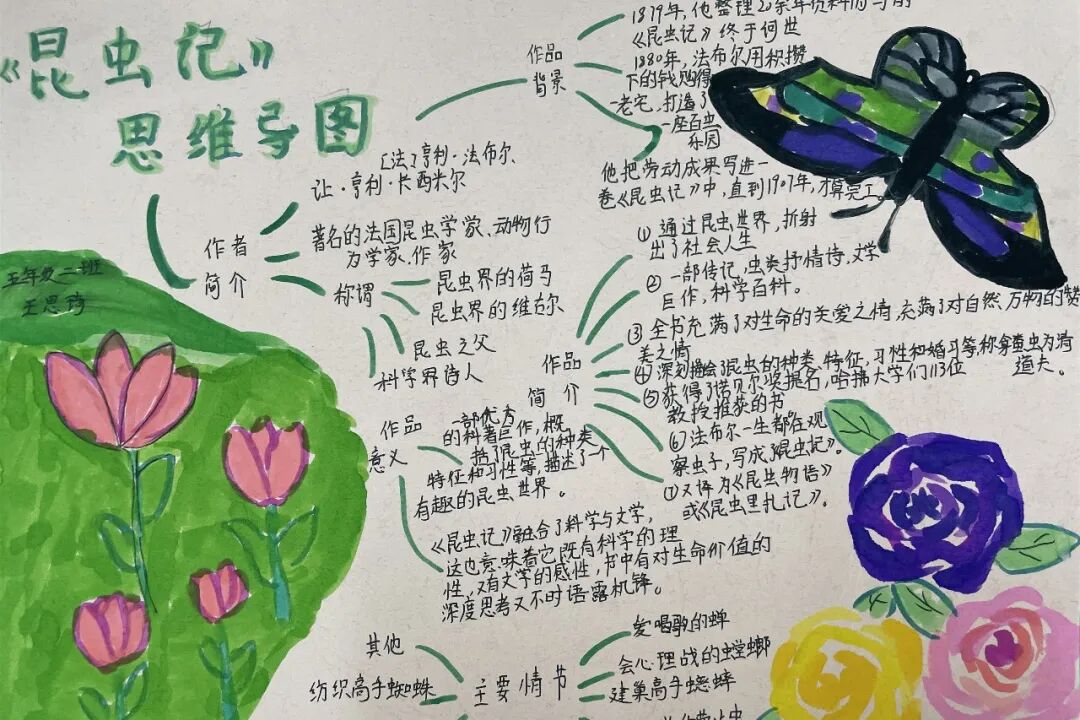 《昆虫记》
思维导图
五年级二班
王思琦
作者
简介
[法]亨利·法布尔、
让·亨利·卡西米尔
著名的法国昆虫学家、动物行
为学家、作家
称谓
昆虫界的荷马
昆虫界的维吉尔
昆虫之父
科学界诗人
作品
背景
1879年,他整理20余年资料而写的
《昆虫记》终于问世
1880年,法布尔用积攒
下的钱购得
一老宅,打造了
一座百虫
乐园
他把劳动成果写进一
卷《昆虫记》中,直到1907年,才算完工。
作品
简介
① 通过昆虫世界,折射
出了社会人生
② 一部传记,虫类抒情诗,文学
巨作,科学百科。
③ 全书充满了对生命的关爱之情,充满了对自然万物的赞
美之情
④ 深刻描绘了昆虫的种类、特征、习性和婚习等,称食粪虫为清
道夫。
⑤ 获得了诺贝尔奖提名,哈佛大学们113位
教授推荐的书
⑥ 法布尔一生都在观
察虫子,写成了《昆虫记》。
① 又译为《昆虫物语》
或《昆虫里扎记》.
作品
意义
一部优秀
的科著巨作,概
括了昆虫的种类
特征和习性等,描述了一个
有趣的昆虫世界。
《昆虫记》融合了科学与文学,
这也意味着它既有科学的理
性,又有文学的感性,书中有对生命价值的
深度思考又不时语露机锋。
主要情节
其他
纺织高手蜘蛛
爱唱歌的蝉
会心理战的螳螂
建巢高手蟋蟀